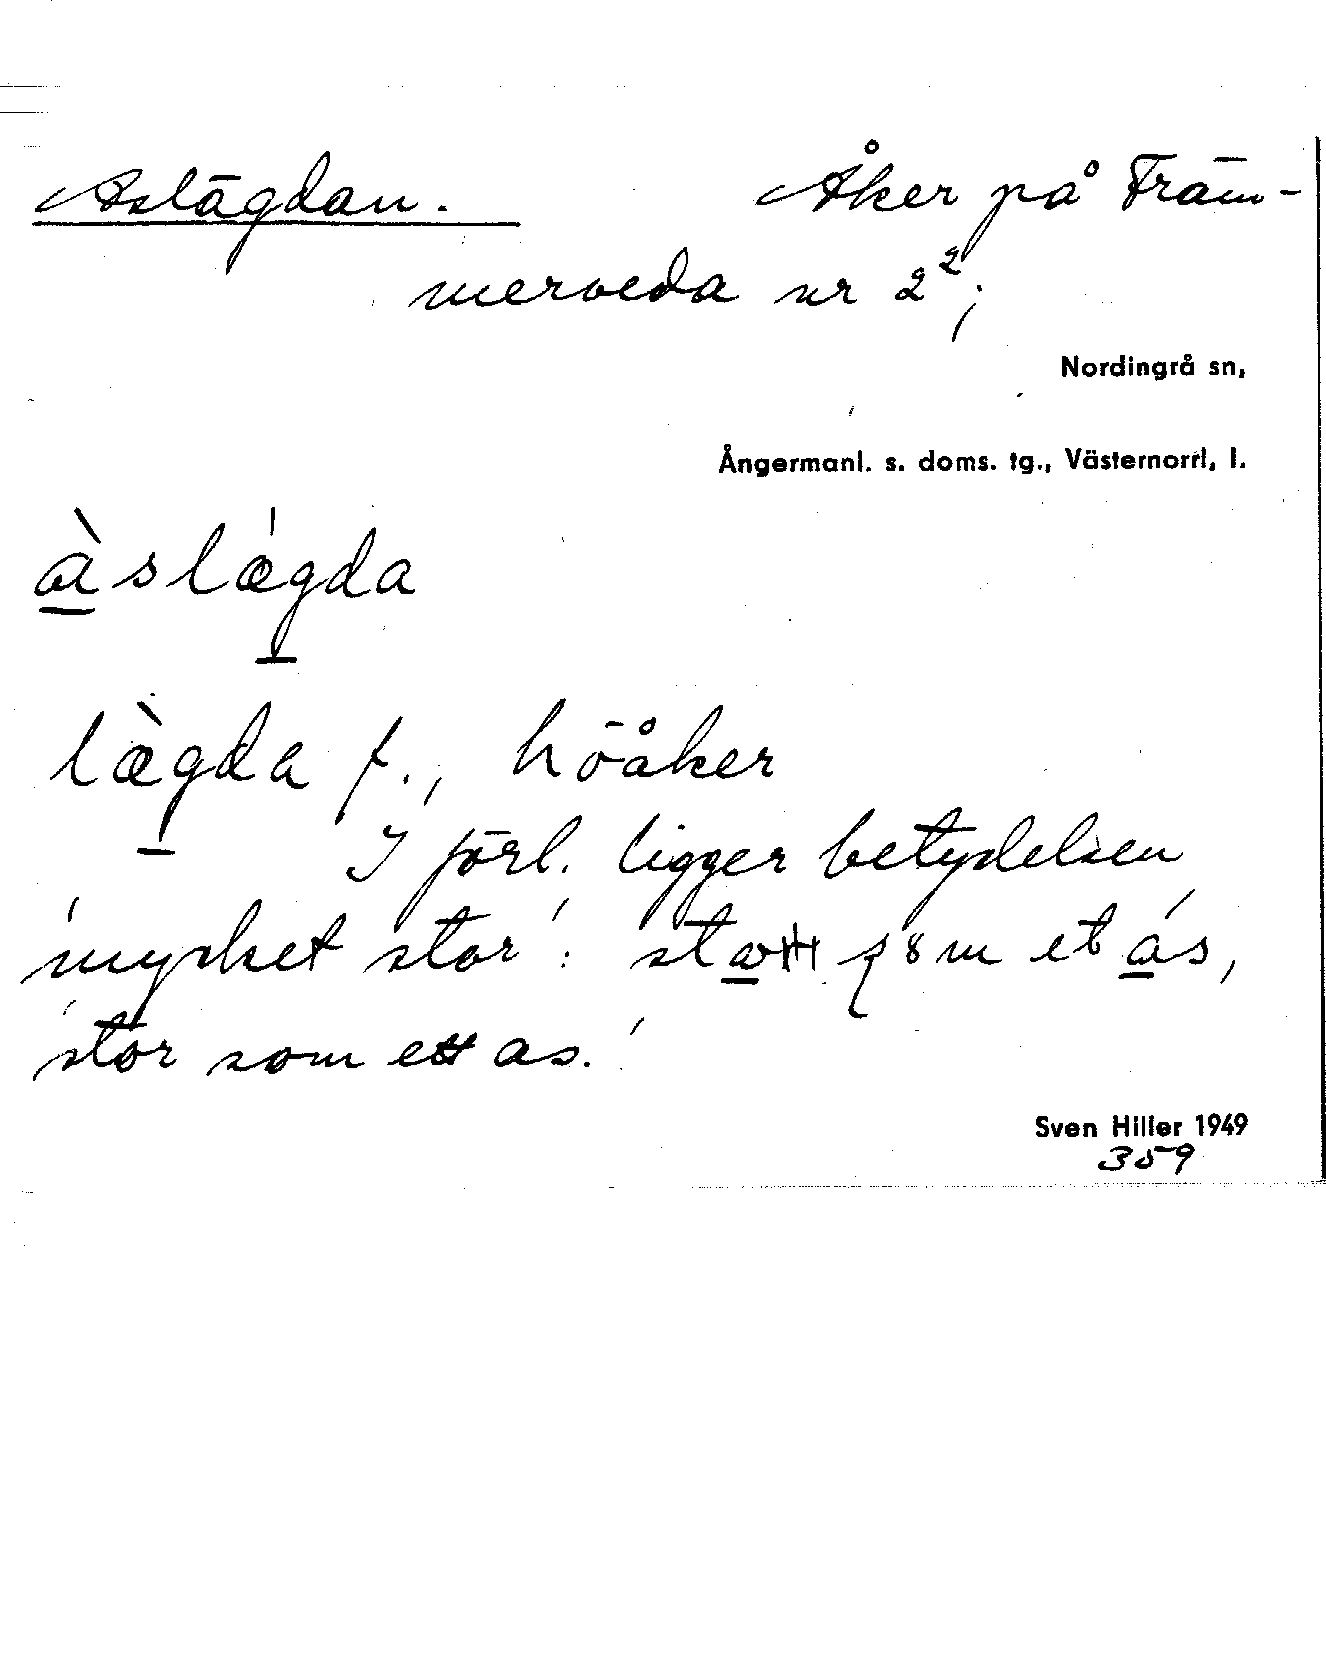 Aslägdan. Åker på Främ-
merveda nr 2²;
Nordingrå sn,
Ångermanl. s. doms. tg., Västernorrl. l.
àslǽgda
lægda f., höåker
I förl. ligger betydelsen
'mycket stor': som et ás,
'stor som ett as.'
Sven Hiller 1949
359